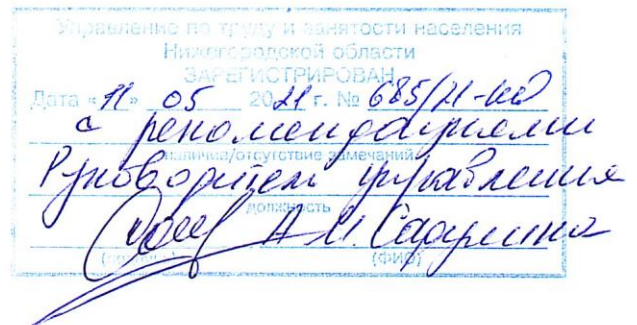 Управление по труду и занятости населения
Нижегородской области
ЗАРЕГИСТРИРОВАН
Дата «11» 05 2021 г. № 685/21-КД
с рекомендациями
наличие/отсутствие замечаний
Руководитель управления
должность
А.И.
(подпись) (ФИО)